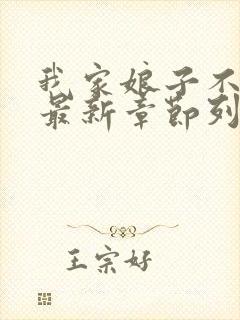 我家娘子不
最新章節列
王宗好